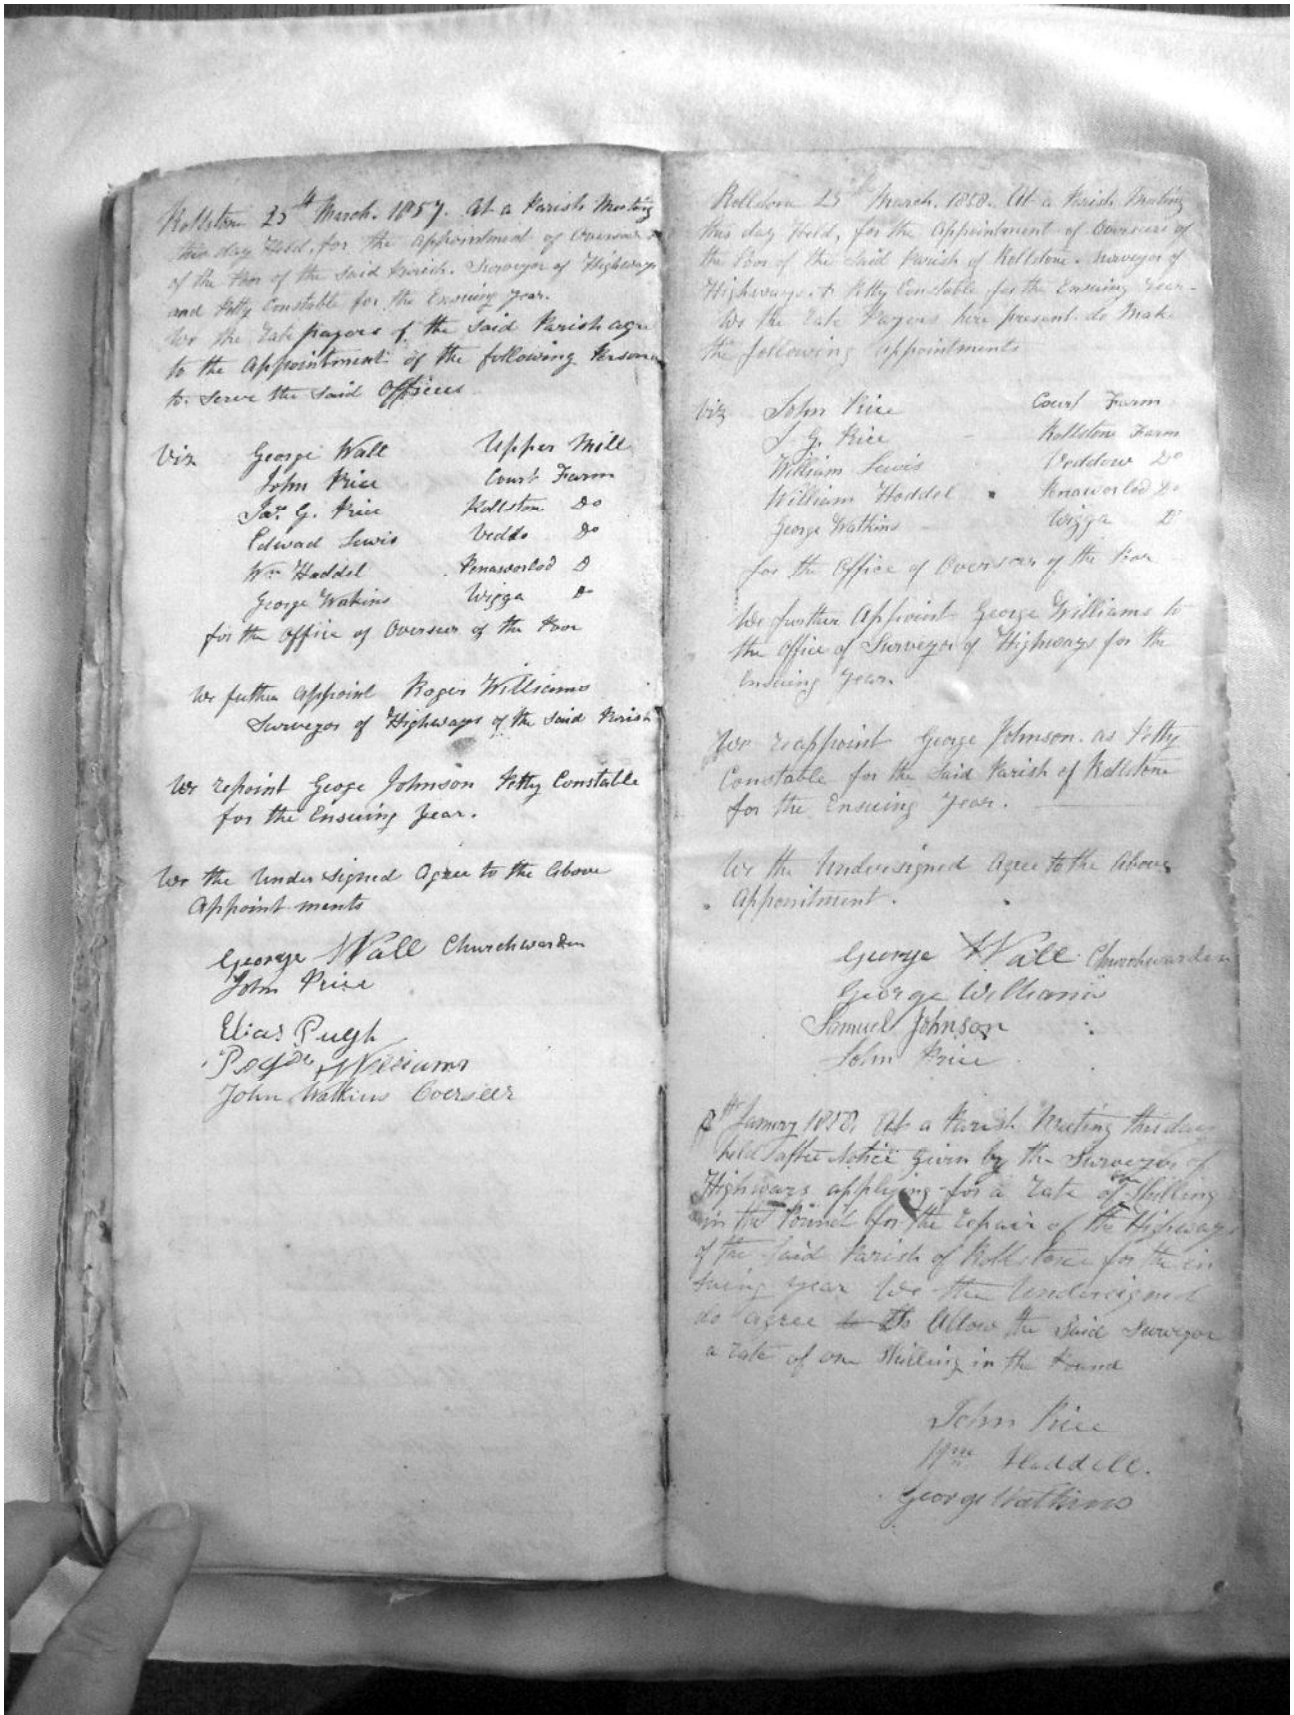 Rollstone 25th March. 1857. At a Parish Meeting
this day Held, for the Appointment of Overseers
of the Poor of the Said Parish. Surveyor of Highways
and Petty Constable for the Ensuing Year.
We the Rate payers of the Said Parish agre
to the Appointment of the following Persons
to Serve the Said Offices
Viz George Wall Upper Mill
John Price Court Farm
Jas. G. Price Rollston Do
Edwad Lewis Veddo Do
Wm Haddel Penaworlod D
George Watkins Wigga Do
for the Office of Overseer of the Poor
We futher Appoint Roger Williams
Surveyor of Highways of the Said Parish
We repoint Geoge Johnson Petty Constable
for the Ensuing Year.
We the Under Signed Agree to the Above
Appoint ments
George Wall Churchwarden
John Price
Elias Pugh
Williams
John Watkins Overseer
Rollstone 25th March. 1858. At a Parish Meeting
this day Held, for the Appointment of Overseers of
the Poor of the Said Parish of Rollstone. Surveyor of
Highways. & Petty Constable for the Ensuing Year-
We the Rate Payers here present do Make
the following Appointments
Viz John Price Court Farm
J. G. Price Rollstone Farm
William Lewis Veddow Do
William Haddel Penaworlod Do
George Watkins Wigga D
for the Office of Overseer of the Poor
We further Appoint George Williams to
the Office of Surveyor of Highways for the
Ensuing Year.
We reappoint George Johnson. as Petty
Constable for the Said Parish of Rollstone
for the Ensuing Year.
We the Undersigned Agree to the Above
Appointment.
George Wall Churchwarden
George Williams
Samuel Johnson
John Price
January 1858. At a Parish Meeting this day
held after Notice given by the Surveyor of
Highways applying for a Rate of one Shilling
in the Pound for the repair of the Highways
of the Said Parish of Rollstone for the en
suing year We the Undersigned
do agree to To Allow the Said Surveyor
a rate of one Shilling in the Pound
John Price
Wm Haddell.
George Watkins